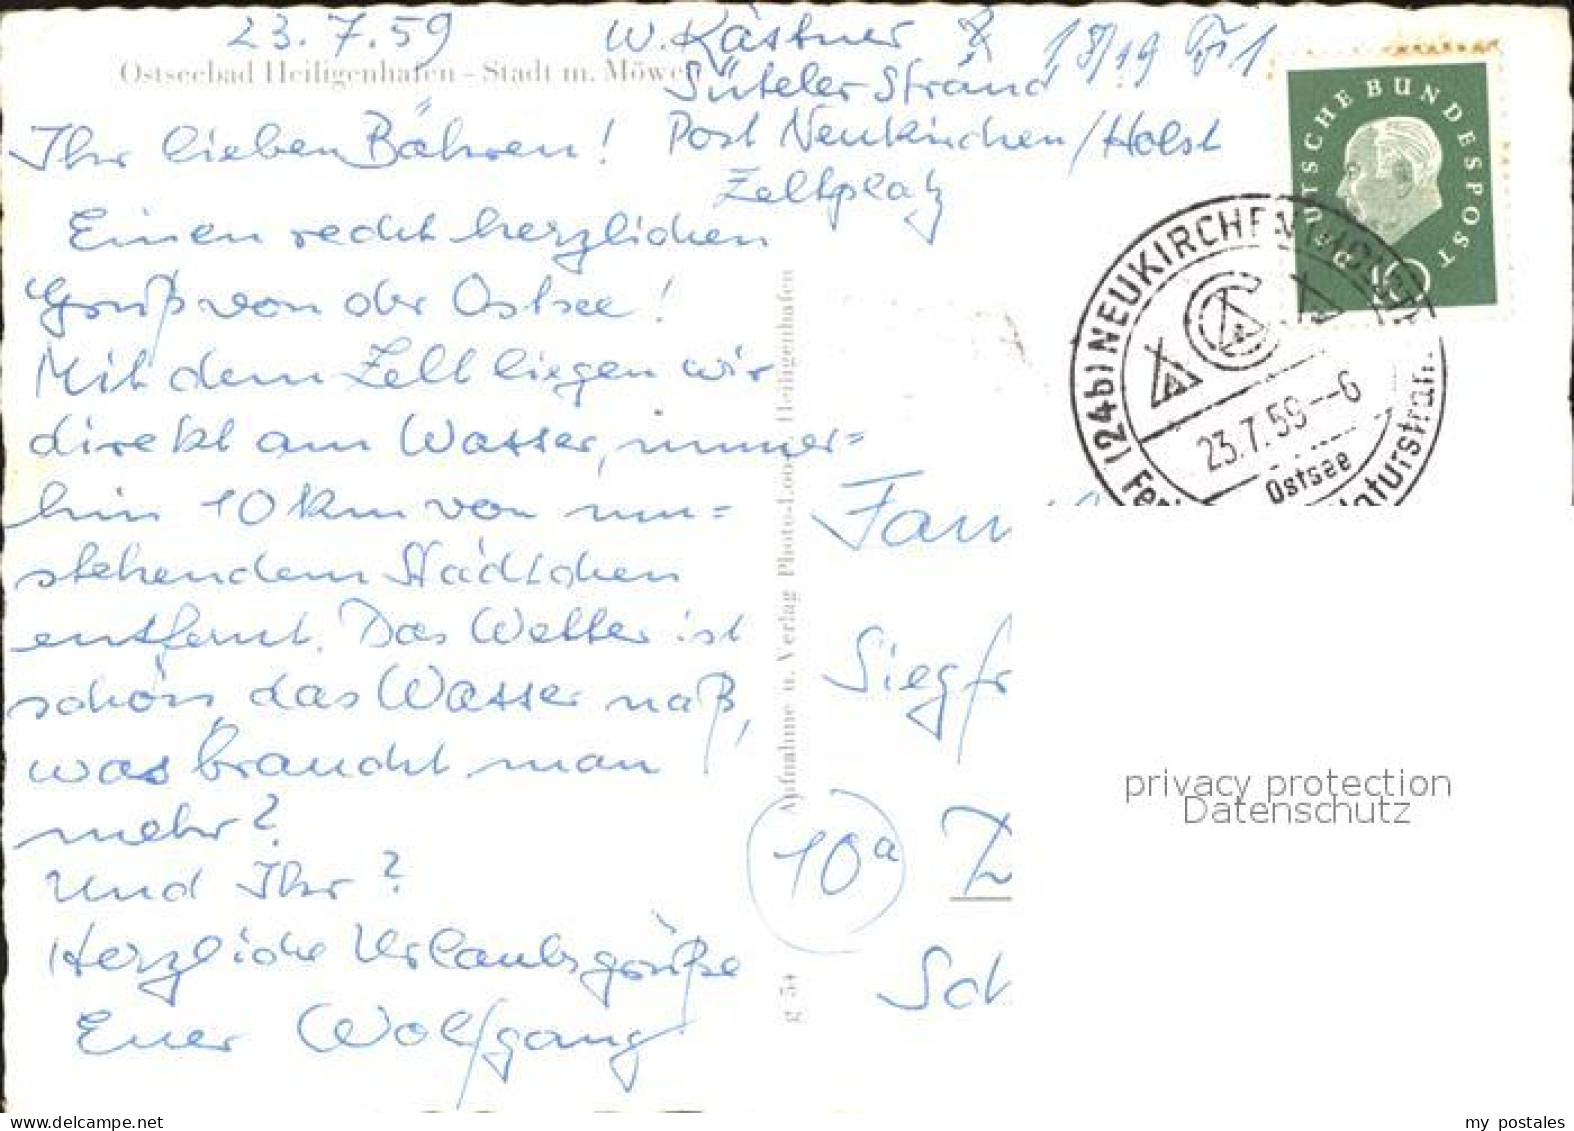 23.7.59
W. Kästner
Ostseebad Heiligenhafen – Stadt m. Möwe
Süteler Strand
Post Neukirchen/Holst
Zeltplatz
Ihr lieben Bähren!
Einen recht herzlichen
Gruß von der Ostsee!
Mit dem Zelt liegen wir
direkt am Wasser, immer=
hin 10 km von um=
stehendem Städtchen
entfernt. Das Wetter ist
schön, das Wasser naß,
was braucht man
mehr?
Und Ihr?
Herzliche Urlaubsgrüße
Euer Wolfgang
g 5+ Aufnahme u. Verlag Photo-Loo Heiligenhafen
DEUTSCHE BUNDESPOST
10
(24b) NEUKIRCHEN
23.7.59--6
Ostsee
Naturstran
Fam
Siegfr
10a
Sch
privacy protection
Datenschutz
www.delcampe.net
my_postales